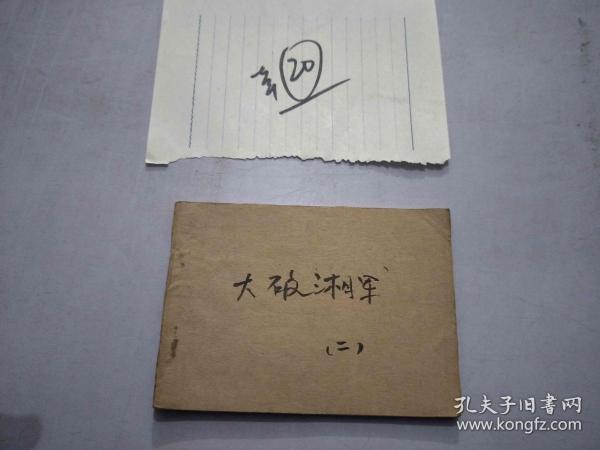 20
大破湘军
(二)
孔夫子旧書网
www.kongfz.com